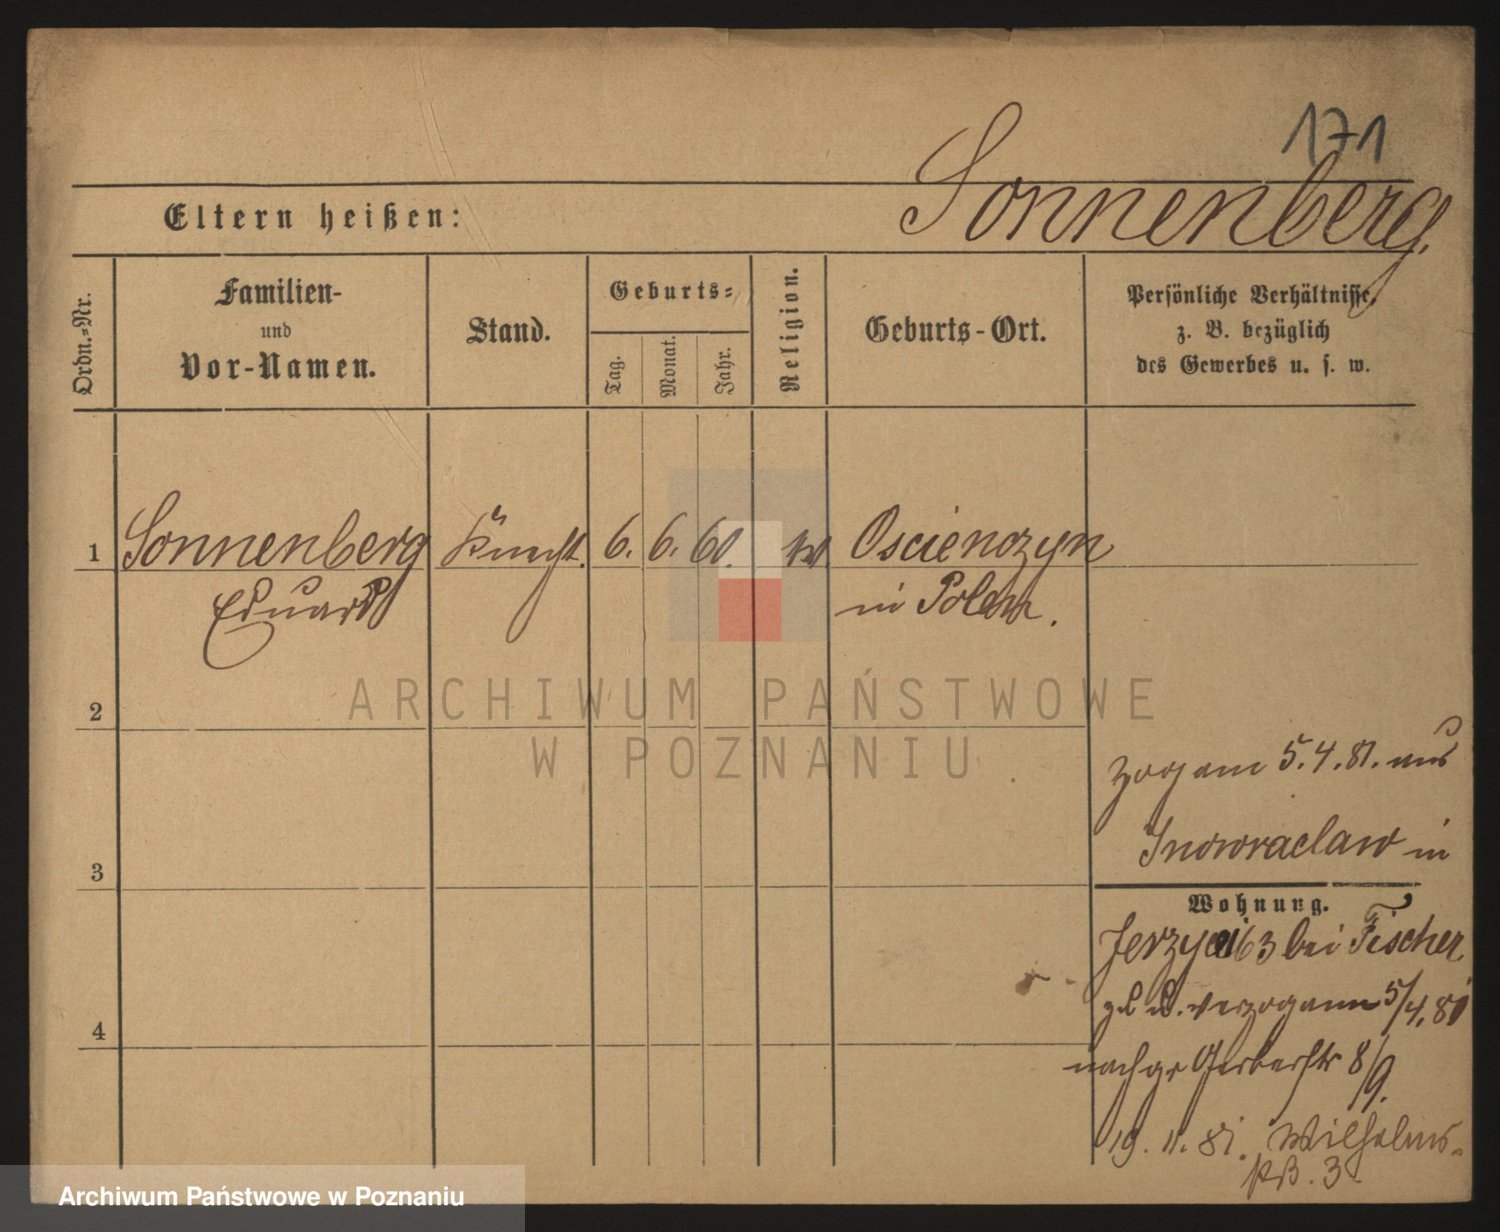 171
Sonnenberg.
Eltern heißen:
Ordn.-Nr.
Familien-
und
Vor-Namen.
Stand.
Geburts-
Tag.
Monat.
Jahr.
Religion.
Geburts-Ort.
Persönliche Verhältnisse,
z. B. bezüglich
des Gewerbes u. s. w.
1 Sonnenberg Knecht. 6. 6. 60. Oscienczyn
Eduard in Polen.
ARCHIWUM PAŃSTWOWE
2
W POZNANIU
zog am 5.4.81. aus
Inowraclaw in
3
Wohnung.
Jerzyce 163 bei Fischer
verzogen 5/4.81
4
nach gr Gerberstr 8/9.
19. 11. 81. Wilhelms-
3
Archiwum Państwowe w Poznaniu